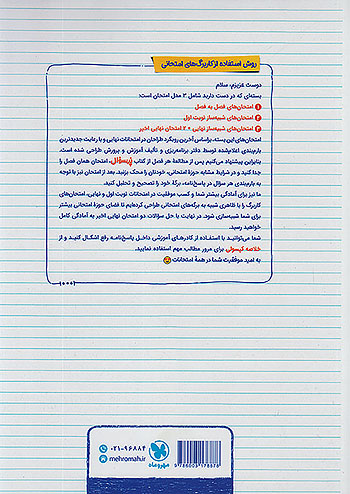 روش استفاده از کاربرگ‌های امتحانی
دوست عزیزم، سلام
بسته‌ای که در دست دارید شامل ۳ مدل امتحان است:
۱ امتحان‌های فصل به فصل
۲ امتحان‌های شبیه‌ساز نوبت اول
۳ امتحان‌های شبیه‌ساز نهایی + ۲ امتحان نهایی اخیر
امتحان‌های این بسته، براساس آخرین رویکرد طراحی در امتحانات نهایی و با رعایت جدیدترین
بارم‌بندی اعلام‌شده توسط دفتر برنامه‌ریزی و تألیف آموزش و پرورش طراحی شده است.
بنابراین پیشنهاد می‌کنیم پس از مطالعهٔ هر فصل از کتاب پُرسؤال، امتحان همان فصل را
جدا کنید و در شرایط مشابه حوزهٔ امتحانی، خودتان را محک بزنید. بعد از امتحان نیز با توجه
به بارم‌بندی هر سؤال در پاسخ‌نامه، برگهٔ خود را تصحیح و تحلیل کنید.
ما نیز برای آمادگی بیشتر شما و کسب موفقیت در امتحانات نوبت اول و نهایی، امتحان‌های
کاربرگ را با ظاهری شبیه به برگه‌های امتحانی طراحی کرده‌ایم تا فضای حوزهٔ امتحانی بیشتر
برای شما شبیه‌سازی شود. در نهایت با حل سؤالات دو امتحان نهایی اخیر به آمادگی کامل
خواهید رسید.
شما می‌توانید با استفاده از کادرهای آموزشی داخل پاسخ‌نامه رفع اشکال کنید و از
خلاصه کپسولی برای مرور مطالب مهم استفاده نمایید.
به امید موفقیت شما در همهٔ امتحانات
۰۲۱-۹۶۸۸۴
mehromah.ir
مهروماه
9 786003 178878